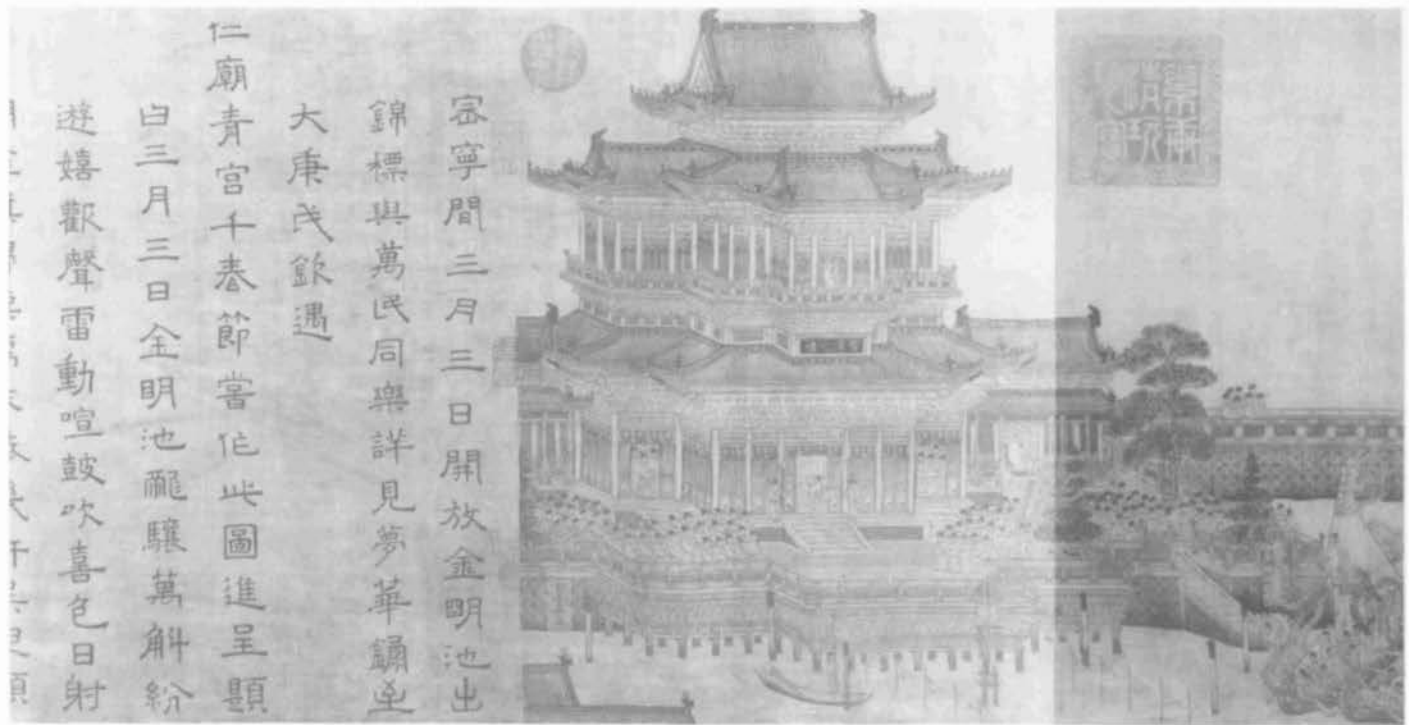 崇寧間三月三日開放金明池出
錦標與萬民同樂詳見夢華錄至
大庚戌欽遇
仁廟青宮千春節嘗作此圖進呈題
曰三月三日金明池龍驤萬斛紛
遊嬉歡聲雷動喧鼓吹喜色日射